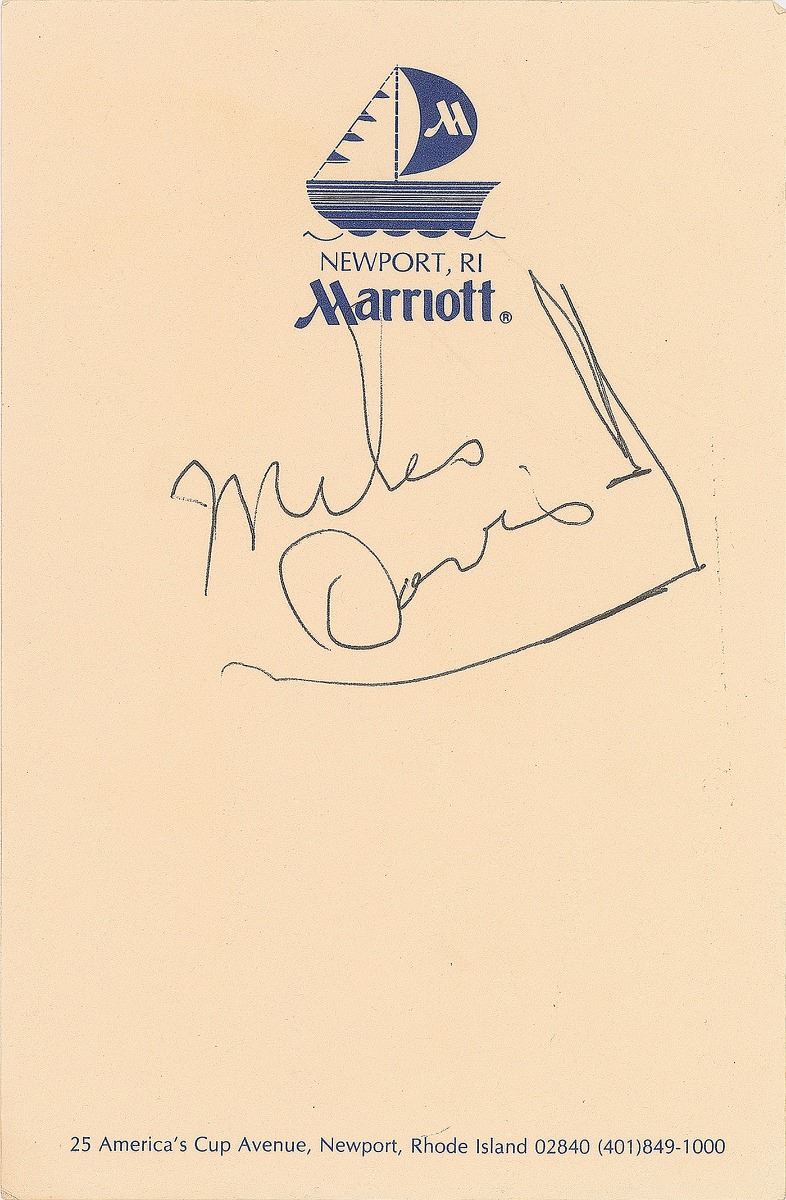 M
NEWPORT, RI
Marriott®
Miles
Davis
25 America's Cup Avenue, Newport, Rhode Island 02840 (401)849-1000